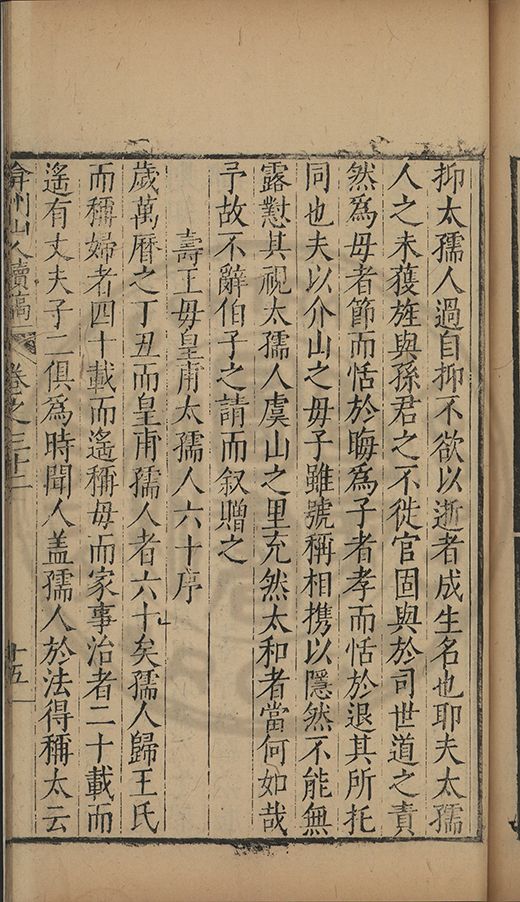 抑太孺人過自抑不欲以逝者成生名也耶夫太孺
人之未獲旌與孫君之不徙官固與於司世道之責
然爲母者節而恬於晦爲子者孝而恬於退其所托
同也夫以介山之母子雖號稱相携以隱然不能無
露懟其視太孺人虞山之里充然太和者當何如哉
予故不辭伯子之請而叙贈之
壽王母皇甫太孺人六十序
歲萬曆之丁丑而皇甫孺人者六十矣孺人歸王氏
而稱婦者四十載而遙稱母而家事治者二十載而
遙有丈夫子二俱爲時聞人盖孺人於法得稱太云
弇州山人續稿 卷之三十二 十五